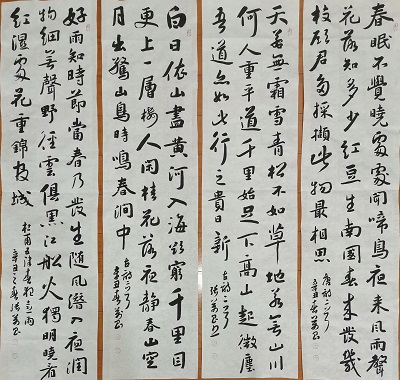 春眠不覺曉處處聞啼鳥夜來風雨聲
花落知多少紅豆生南國春來發幾
枝願君多採擷此物最相思
天若無霜雪青松不如草地若無山川
何人重平道千里始足下高山起微塵
吾道亦如此行之貴日新
古詩二首
白日依山盡黃河入海欲窮千里目
更上一層樓人閑桂花落夜靜春山空
月出驚山鳥時鳴春澗中
古詩二首
好雨知時節當春乃發生隨風潛入夜潤
物細無聲野徑雲俱黑江船火獨明曉看
紅濕處花重錦官城
杜甫五律春夜喜雨